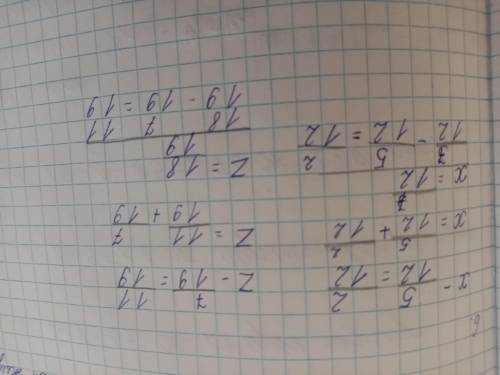 6.
x - 5/12 = 2/12
x = 5/12 + 2/12
x = 7/12
7/12 - 5/12 = 2/12
z - 7/19 = 11/19
z = 11/19 + 7/19
z = 18/19
18/19 - 7/19 = 11/19